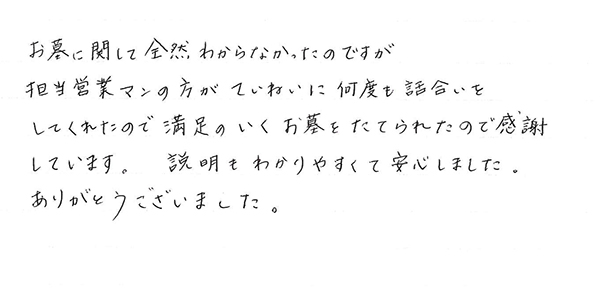 お墓に関して全然わからなかったのですが
担当営業マンの方がていねいに何度も話合いを
してくれたので満足のいくお墓をたてられたので感謝
しています。 説明もわかりやすくて安心しました。
ありがとうございました。